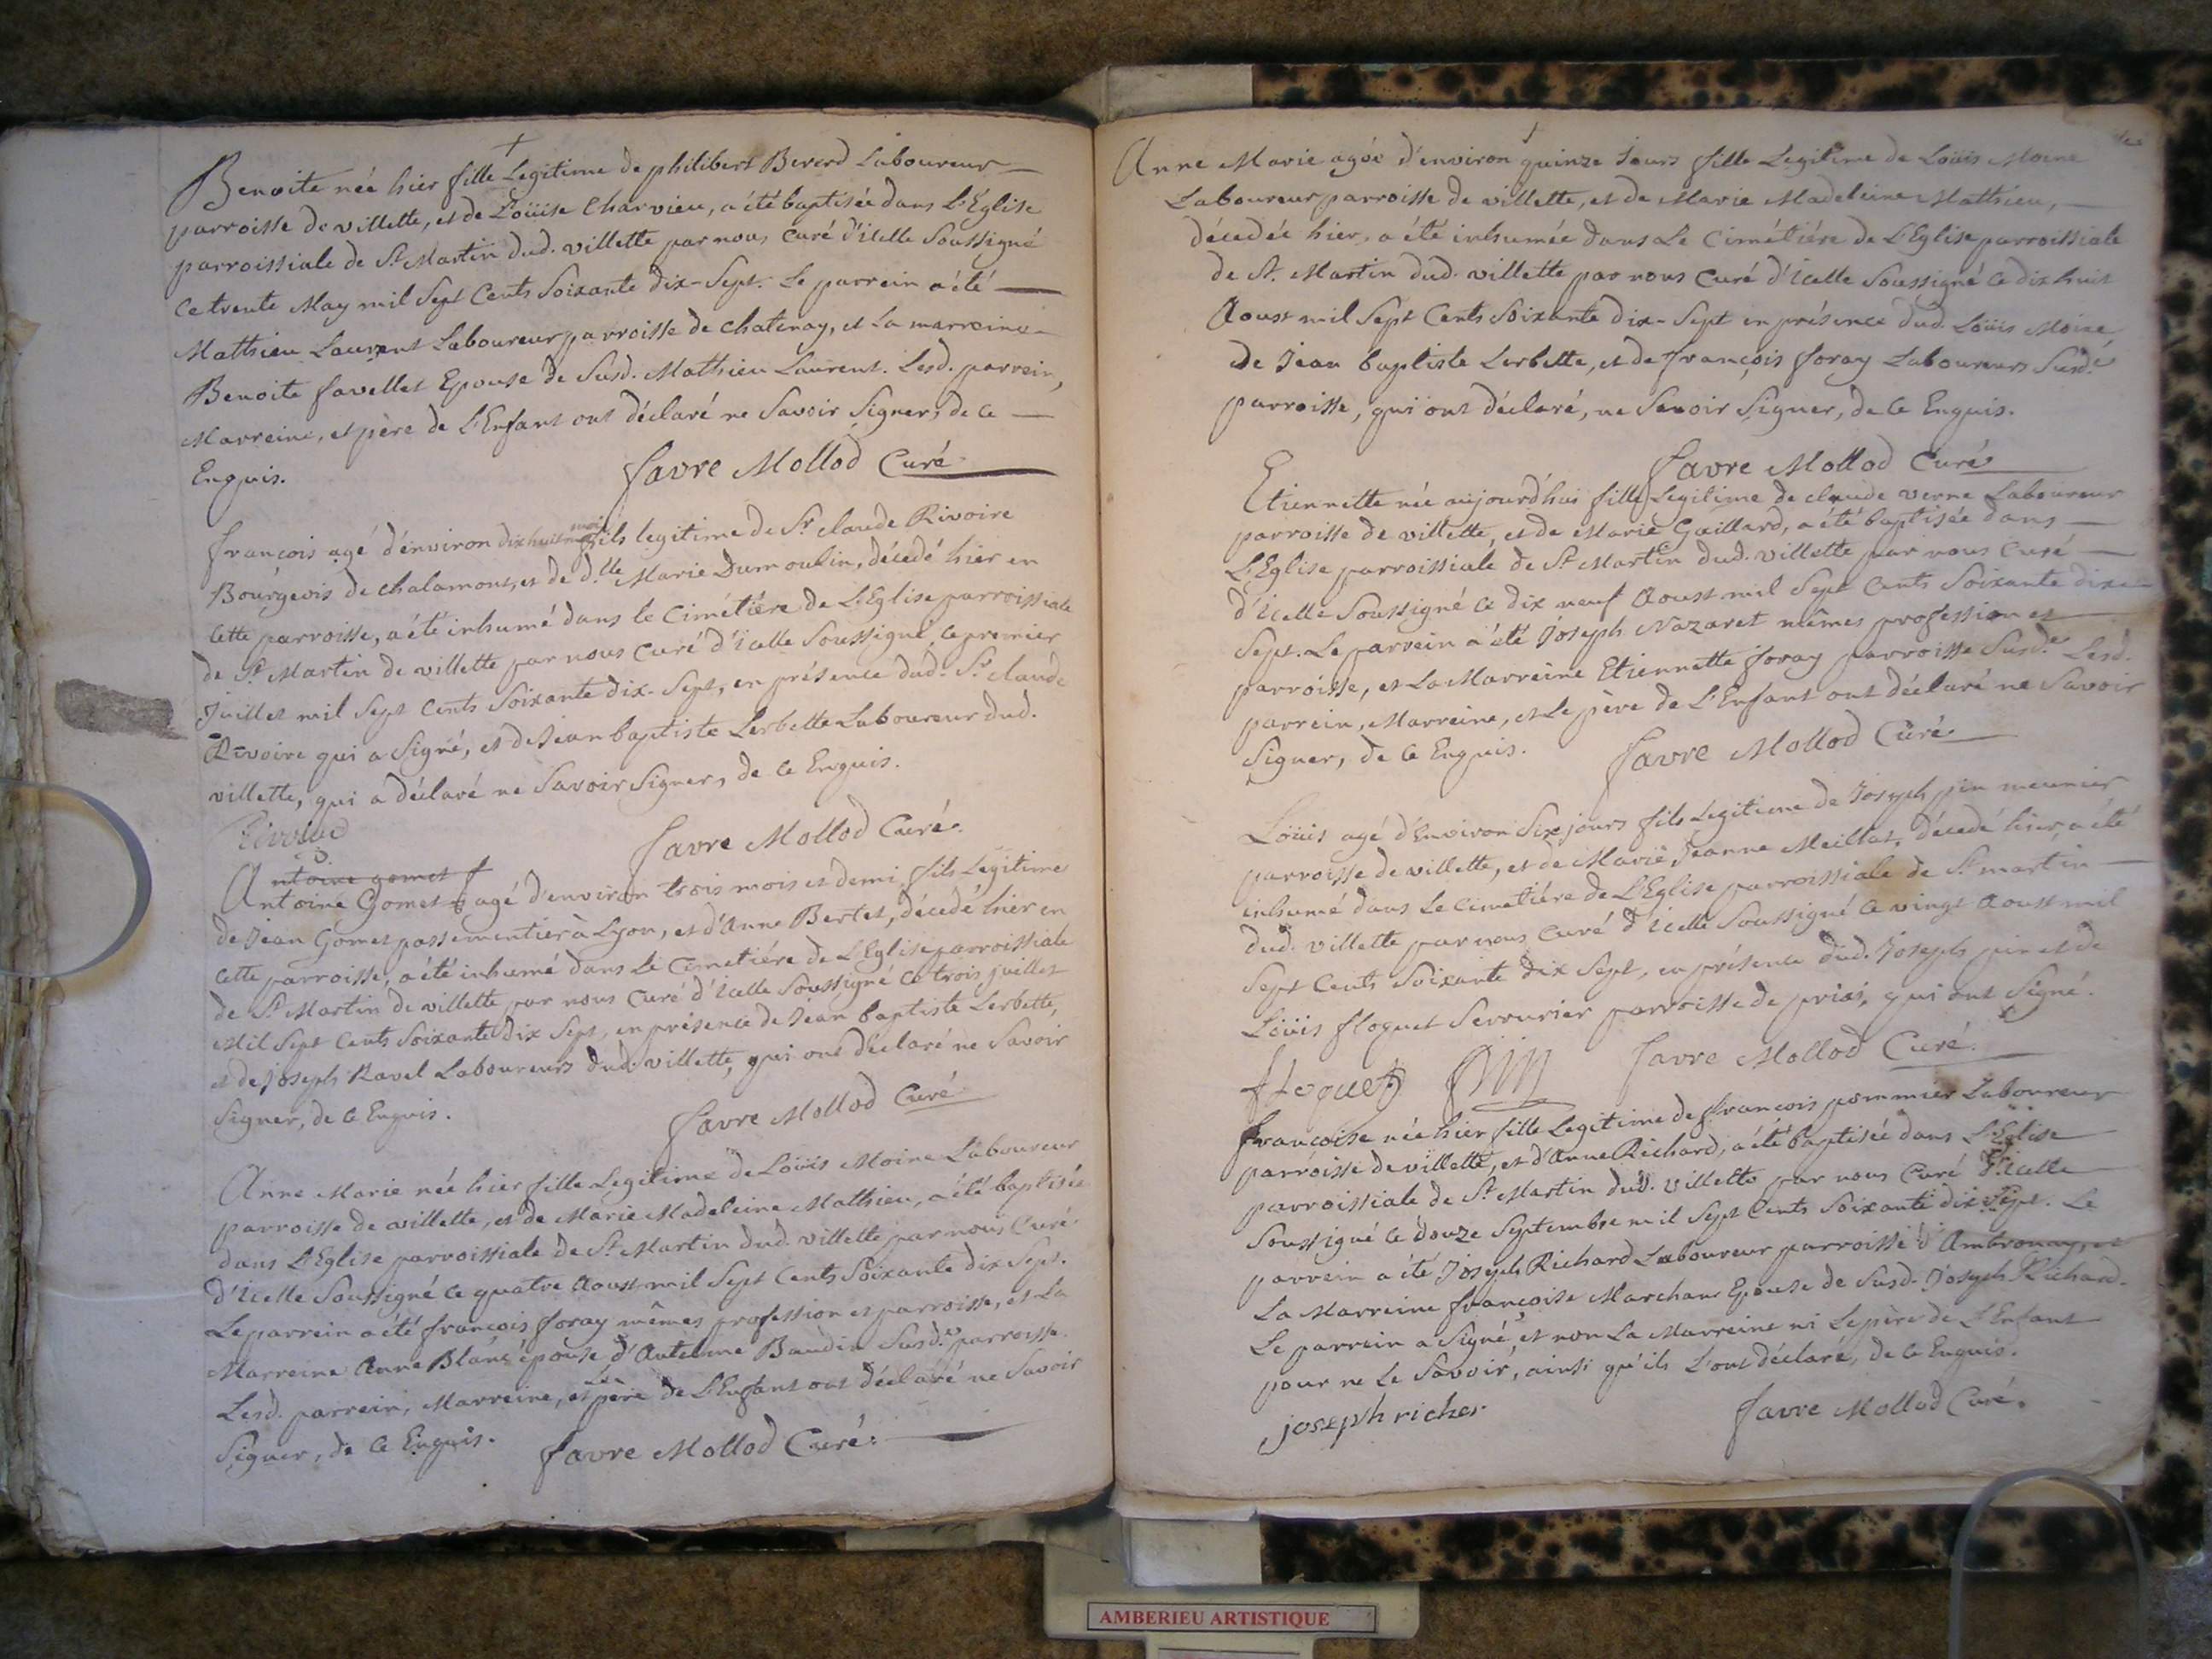 Benoite née hier fille Legitime de philibert Bererd Laboureur
parroisse de villette, et de Loüise Charvieu, a été baptisée dans L'Eglise
parroissiale de St. Martin dud. villette par nous Curé d'icelle Soussigné
Ce trente May mil Sept Cents Soixante dix-Sept. Le parrein a été
Mathieu Laurent Laboureur parroisse de Chatenay, et La marreine
Benoite favellet Epouse de Susd. Mathieu Laurent. Lesd. parrein,
Marreine, et père de L'Enfant ont déclaré ne Savoir Signer, de ce
Enquis.
favre Mollod Curé
françois agé d'environ dix huit mois fils legitime de Sr. claude Rivoire
Bourgeois de chalamont, et de d.lle Marie Dumoulin, décedé hier en
Cette parroisse, a été inhumé dans le Cimétiére de L'Eglise parroissiale
de St. Martin de villette par nous Curé d'icelle Soussigné, ce premier
Juillet mil Sept Cents Soixante dix-Sept, en présence dud. Sr. claude
Rivoire qui a Signé, et de Jean baptiste Lerbette Laboureur dud.
villette, qui a déclaré ne Savoir Signer, de ce Enquis.
favre Mollod Curé.
Antoine gomet
Antoine Gomet agé d'environ trois mois et demi, fils Legitime
de Jean Gomet passementier à Lyon, et d'Anne Bertet, décedé hier en
Cette parroisse, a été inhumé dans Le Cimetiére de L'Eglise parroissiale
de St. Martin de villette par nous Curé d'icelle Soussigné ce trois juillet
Mil Sept Cents Soixante dix Sept, en présence de Jean baptiste Lerbette,
et de joseph Ravel Laboureurs dud. villette, qui ont déclaré ne Savoir
Signer, de ce Enquis.
favre Mollod Curé
Anne Marie née hier fille Legitime de Loüis Moine Laboureur
parroisse de villette, et de Marie Madeleine Mathieu, a été baptisée
dans L'Eglise parroissiale de St. Martin dud. villette par nous Curé
d'icelle Soussigné ce quatre Aoust mil Sept Cents Soixante dix Sept.
Le parrein a été françois foray mêmes profession et parroisse, et La
Marreine Anne Blanc épouse d'Antelme Baudin Susd.e parroisse.
Lesd. parrein, Marreine, et Le père de L'Enfant ont déclaré ne Savoir
Signer, de ce Enquis.
favre Mollod Curé.
Anne Marie agée d'environ quinze Jours fille Legitime de Loüis Moine
Laboureur parroisse de villette, et de Marie Madeleine Mathieu,
décedée hier, a été inhumée dans Le Cimétiére de L'Eglise parroissiale
de St. Martin dud. villette par nous Curé d'icelle Soussigné ce dix huit
Aoust mil Sept Cents Soixante dix-Sept en présence dud. Loüis Moine
de Jean baptiste Lerbette, et de françois foray Laboureurs Susd.e
parroisse, qui ont déclaré, ne Savoir Signer, de ce Enquis.
favre Mollod Curé
Etiennette née aujourd'hui fille Legitime de claude verne Laboureur
parroisse de villette, et de Marie Gaillard, a été baptisée dans
L'Eglise parroissiale de St. Martin dud. villette par nous Curé
d'icelle Soussigné ce dix neuf Aoust mil Sept Cents Soixante dix
Sept. Le parrein a été Joseph Nazaret mêmes profession et
parroisse, et La Marreine Etiennette foray parroisse Susd.e Lesd.
parrein, Marreine, et Le père de L'Enfant ont déclaré ne Savoir
Signer, de ce Enquis.
favre Mollod Curé
Loüis agé d'Environ Six jours fils Legitime de Joseph pin meunier
parroisse de villette, et de Marie Jeanne Meillat, décedé hier, a été
inhumé dans Le Cimetiére de L'Eglise parroissiale de St. martin
dud. villette par nous Curé d'icelle Soussigné ce vingt Aoust mil
Sept Cents Soixante dix Sept, en présence dud. Joseph pin et de
Loüis floquet Serrurier parroisse de priai, qui ont Signé.
floquet pin favre Mollod Curé.
françoise née hier fille Legitime de françois pommier Laboureur
parroisse de villette, et d'Anne Richard, a été baptisée dans L'Eglise
parroissiale de St. Martin dud. villette par nous Curé d'icelle
Soussigné ce douze Septembre mil Sept Cents Soixante dix Sept. Le
parrein a été Joseph Richard Laboureur parroisse d'Ambronay, et
La Marreine françoise Marchant Epouse de Susd. Joseph Richard.
Le parrein a Signé, et non La Marreine ni Le père de L'Enfant
pour ne Le Savoir, ainsi qu'ils L'ont déclaré, de ce Enquis.
joseph richer
favre Mollod Curé.
AMBERIEU ARTISTIQUE